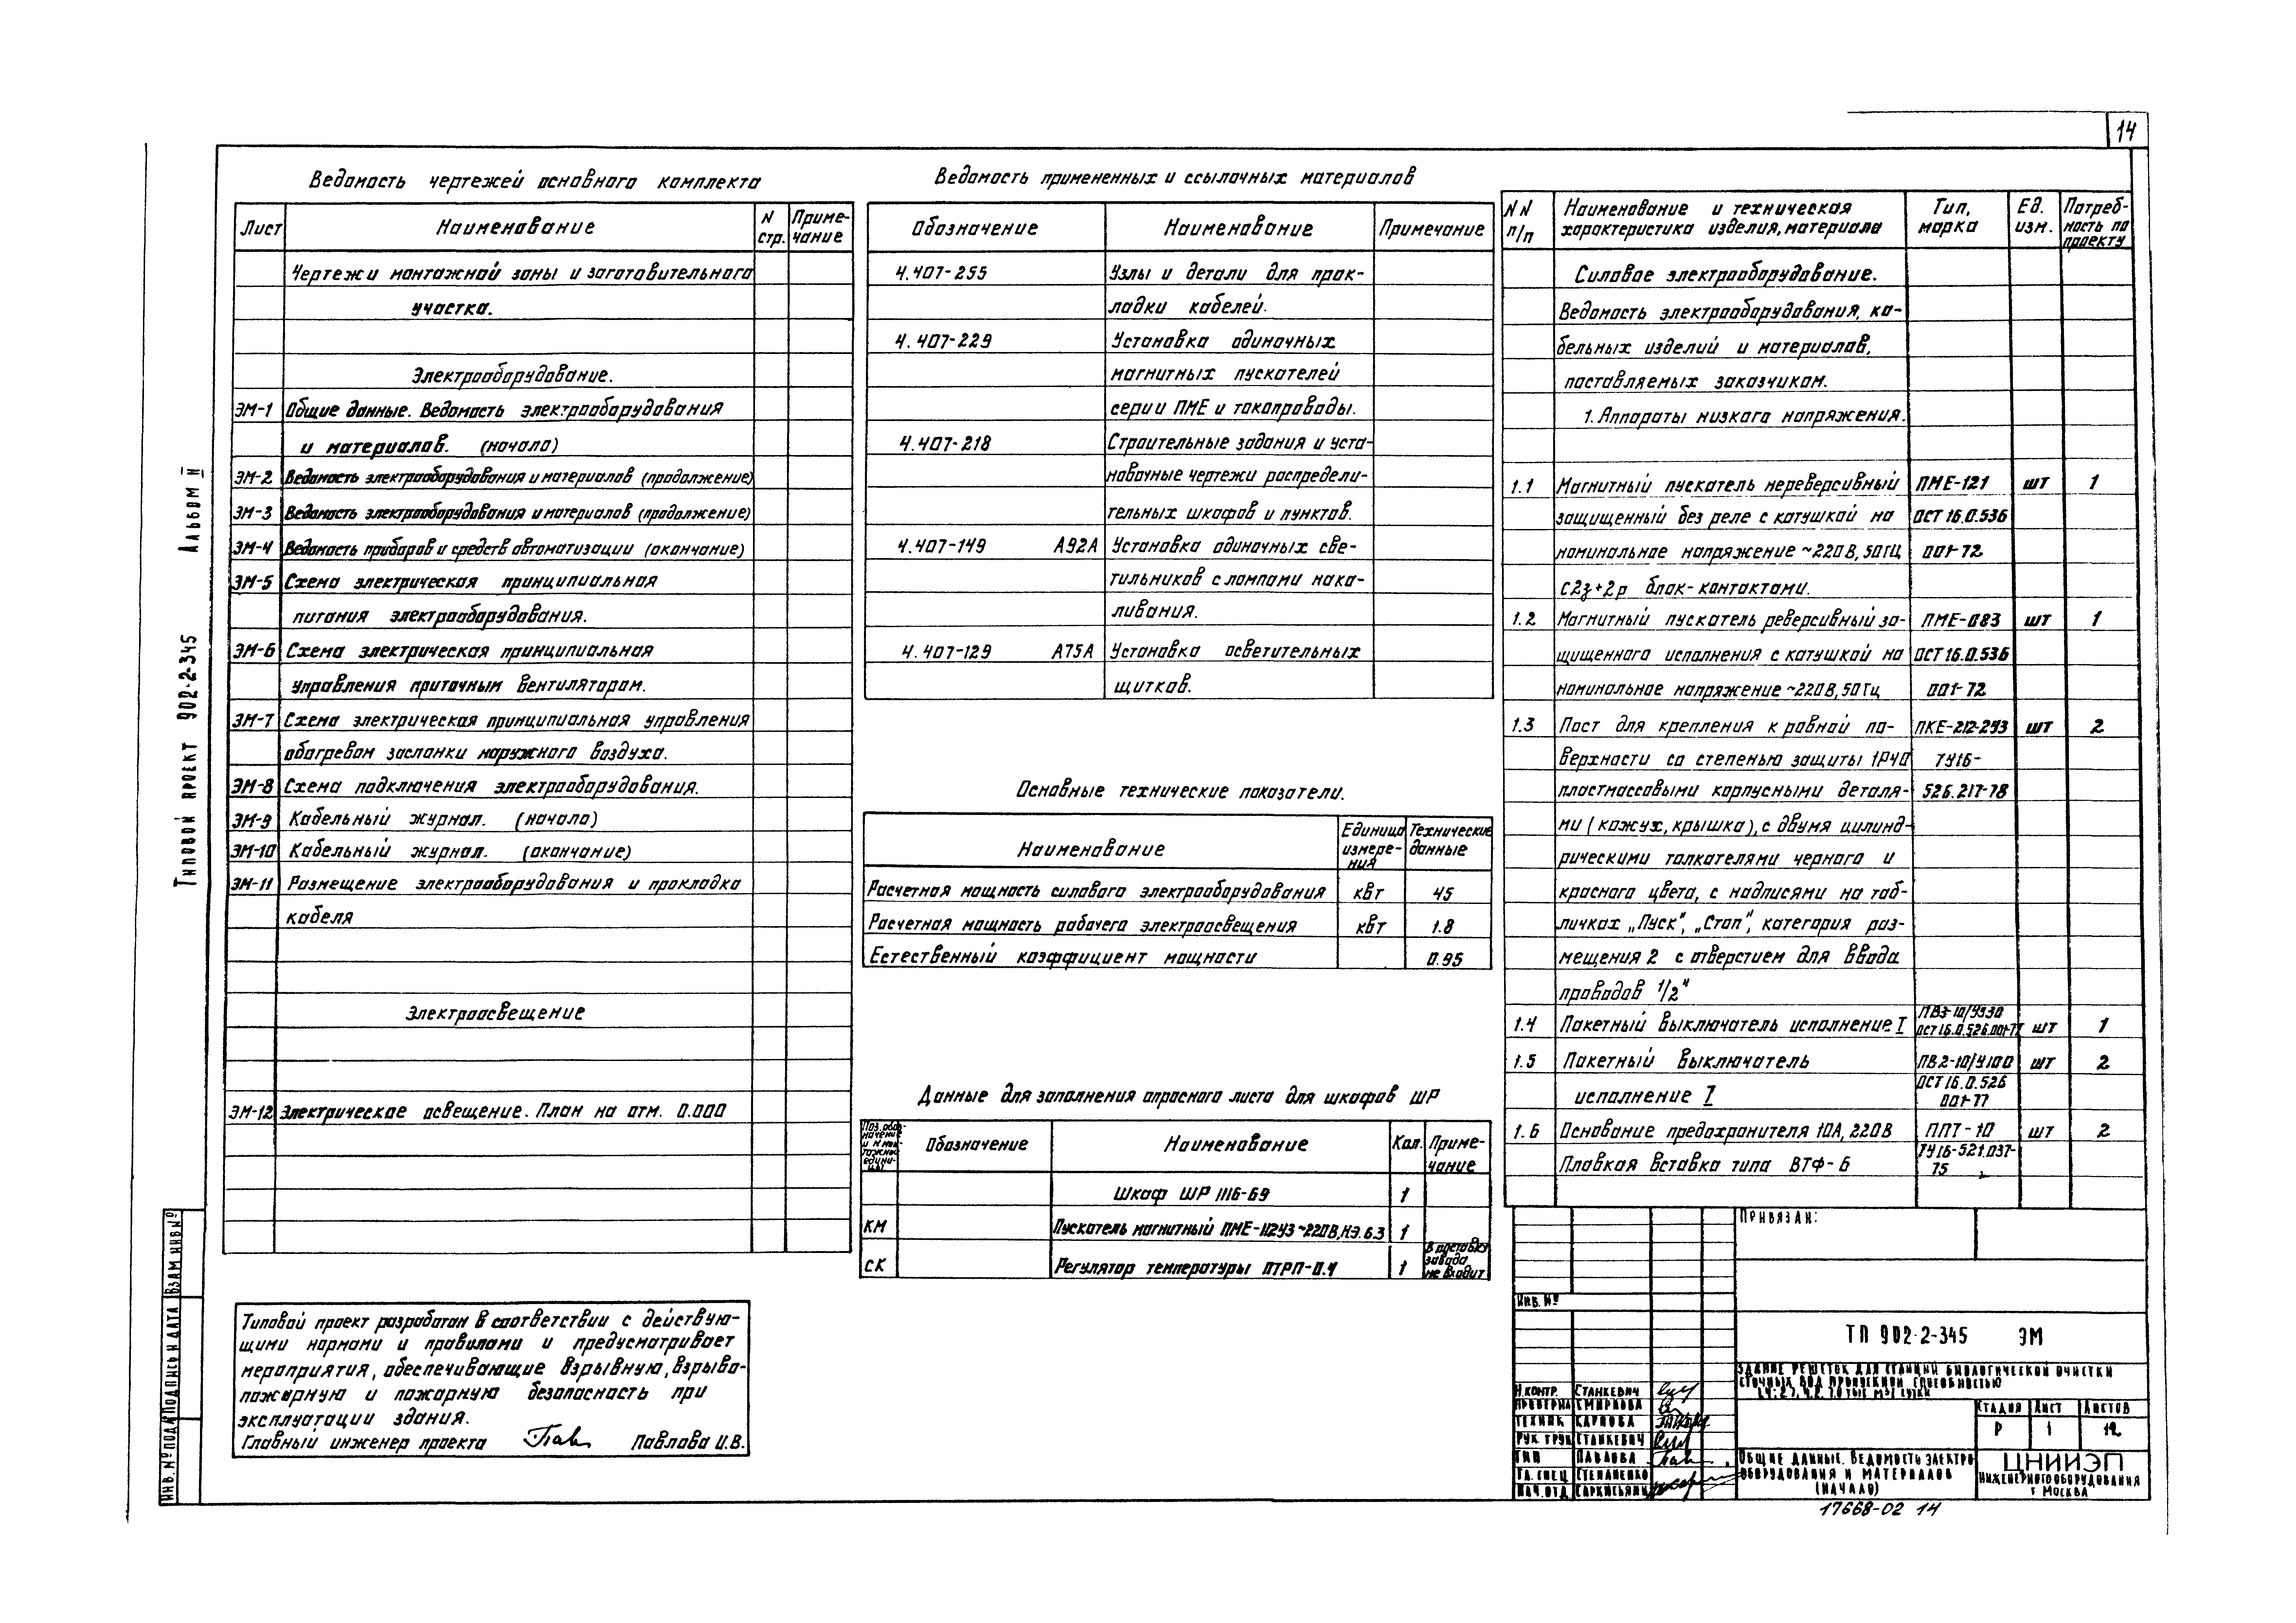 14
Альбом II
Типовой проект 902-2-345
ИНВ.№ПОДЛ ПОДПИСЬ И ДАТА ВЗАМ.ИНВ.№
Ведомость чертежей основного комплекта
Лист Наименование N стр. Приме-чание
Чертежи монтажной зоны и заготовительного
участка.
Электрооборудование.
ЭМ-1 Общие данные. Ведомость электрооборудования
и материалов. (начало)
ЭМ-2 Ведомость электрооборудования и материалов (продолжение)
ЭМ-3 Ведомость электрооборудования и материалов (продолжение)
ЭМ-4 Ведомость приборов и средств автоматизации (окончание)
ЭМ-5 Схема электрическая принципиальная
питания электрооборудования.
ЭМ-6 Схема электрическая принципиальная
управления приточным вентилятором.
ЭМ-7 Схема электрическая принципиальная управления
обогревом заслонки наружного воздуха.
ЭМ-8 Схема подключения электрооборудования.
ЭМ-9 Кабельный журнал. (начало)
ЭМ-10 Кабельный журнал. (окончание)
ЭМ-11 Размещение электрооборудования и прокладка
кабеля
Электроосвещение
ЭМ-12 Электрическое освещение. План на отм. 0.000
Типовой проект разработан в соответствии с действую-
щими нормами и правилами и предусматривает
мероприятия, обеспечивающие взрывную, взрыво-
пожарную и пожарную безопасность при
эксплуатации здания.
Главный инженер проекта Павлова И.В.
Ведомость примененных и ссылочных материалов
Обозначение Наименование Примечание
4.407-255 Узлы и детали для прок-
ладки кабелей.
4.407-229 Установка одиночных
магнитных пускателей
серии ПМЕ и токопроводы.
4.407-218 Строительные задания и уста-
новочные чертежи распредели-
тельных шкафов и пунктов.
4.407-149 А92А Установка одиночных све-
тильников с лампами нака-
ливания.
4.407-129 А75А Установка осветительных
щитков.
Основные технические показатели.
Наименование Единица измере-ния Технические данные
Расчетная мощность силового электрооборудования кВт 45
Расчетная мощность рабочего электроосвещения кВт 1.8
Естественный коэффициент мощности 0.95
Данные для заполнения опросного листа для шкафов ШР
Обозначение Наименование Кол. Приме-чание
Шкаф ШР 1116-69 1
КМ Пускатель магнитный ПМЕ-112У3 ~220В, НЭ.6.3 1
СК Регулятор температуры ПТРП-0.4 1 В поставку завода не входит
NN п/п Наименование и техническая характеристика изделия, материала Тип, марка Ед. изм. Потреб-ность по проекту
Силовое электрооборудование.
Ведомость электрооборудования, ка-
бельных изделий и материалов,
поставляемых заказчиком.
1. Аппараты низкого напряжения.
1.1 Магнитный пускатель нереверсивный ПМЕ-121 шт 1
защищенный без реле с катушкой на ОСТ 16.0.536
номинальное напряжение ~220В, 50ГЦ 001-72
с 2з+2р блок-контактами.
1.2 Магнитный пускатель реверсивный за- ПМЕ-083 шт 1
щищенного исполнения с катушкой на ОСТ 16.0.536
номинальное напряжение ~220В, 50Гц 001-72
1.3 Пост для крепления к ровной по- ПКЕ-212-2У3 шт 2
верхности со степенью защиты 1Р40 ТУ16-
пластмассовыми корпусными деталя- 526.217-78
ми (кожух, крышка), с двумя цилинд-
рическими толкателями черного и
красного цвета, с надписями на таб-
личках „Пуск", „Стоп", категория раз-
мещения 2 с отверстием для ввода
проводов 1/2"
1.4 Пакетный выключатель исполнение I ОСТ 16.0.526.001-77 шт 1
1.5 Пакетный выключатель ПВ2-10/У100 шт 2
исполнение I ОСТ 16.0.526 001-77
1.6 Основание предохранителя 10А, 220В ППТ-10 шт 2
Плавкая вставка типа ВТФ-6 ТУ16-521.037-75
ПРИВЯЗАН:
ИНВ. №
ТП 902-2-345 ЭМ
ЗДАНИЕ РЕШЕТОК ДЛЯ СТАНЦИЙ БИОЛОГИЧЕСКОЙ ОЧИСТКИ
СТОЧНЫХ ВОД ПРОПУСКНОЙ СПОСОБНОСТЬЮ
Н.КОНТР. СТАНКЕВИЧ
ПРОВЕРИЛ СМИРНОВА
ТЕХНИК КАРПОВА
РУК. ГРУП СТАНКЕВИЧ
ГИП ПАВЛОВА
ГЛ. СПЕЦ СТЕПАНЕНКО
НАЧ.ОТД
СТАДИЯ ЛИСТ ЛИСТОВ
Р 1 12
ОБЩИЕ ДАННЫЕ. ВЕДОМОСТЬ ЭЛЕКТРО
ОБОРУДОВАНИЯ И МАТЕРИАЛОВ
(НАЧАЛО)
ЦНИИЭП
ИНЖЕНЕРНОГО ОБОРУДОВАНИЯ
Г МОСКВА
17668-02 14